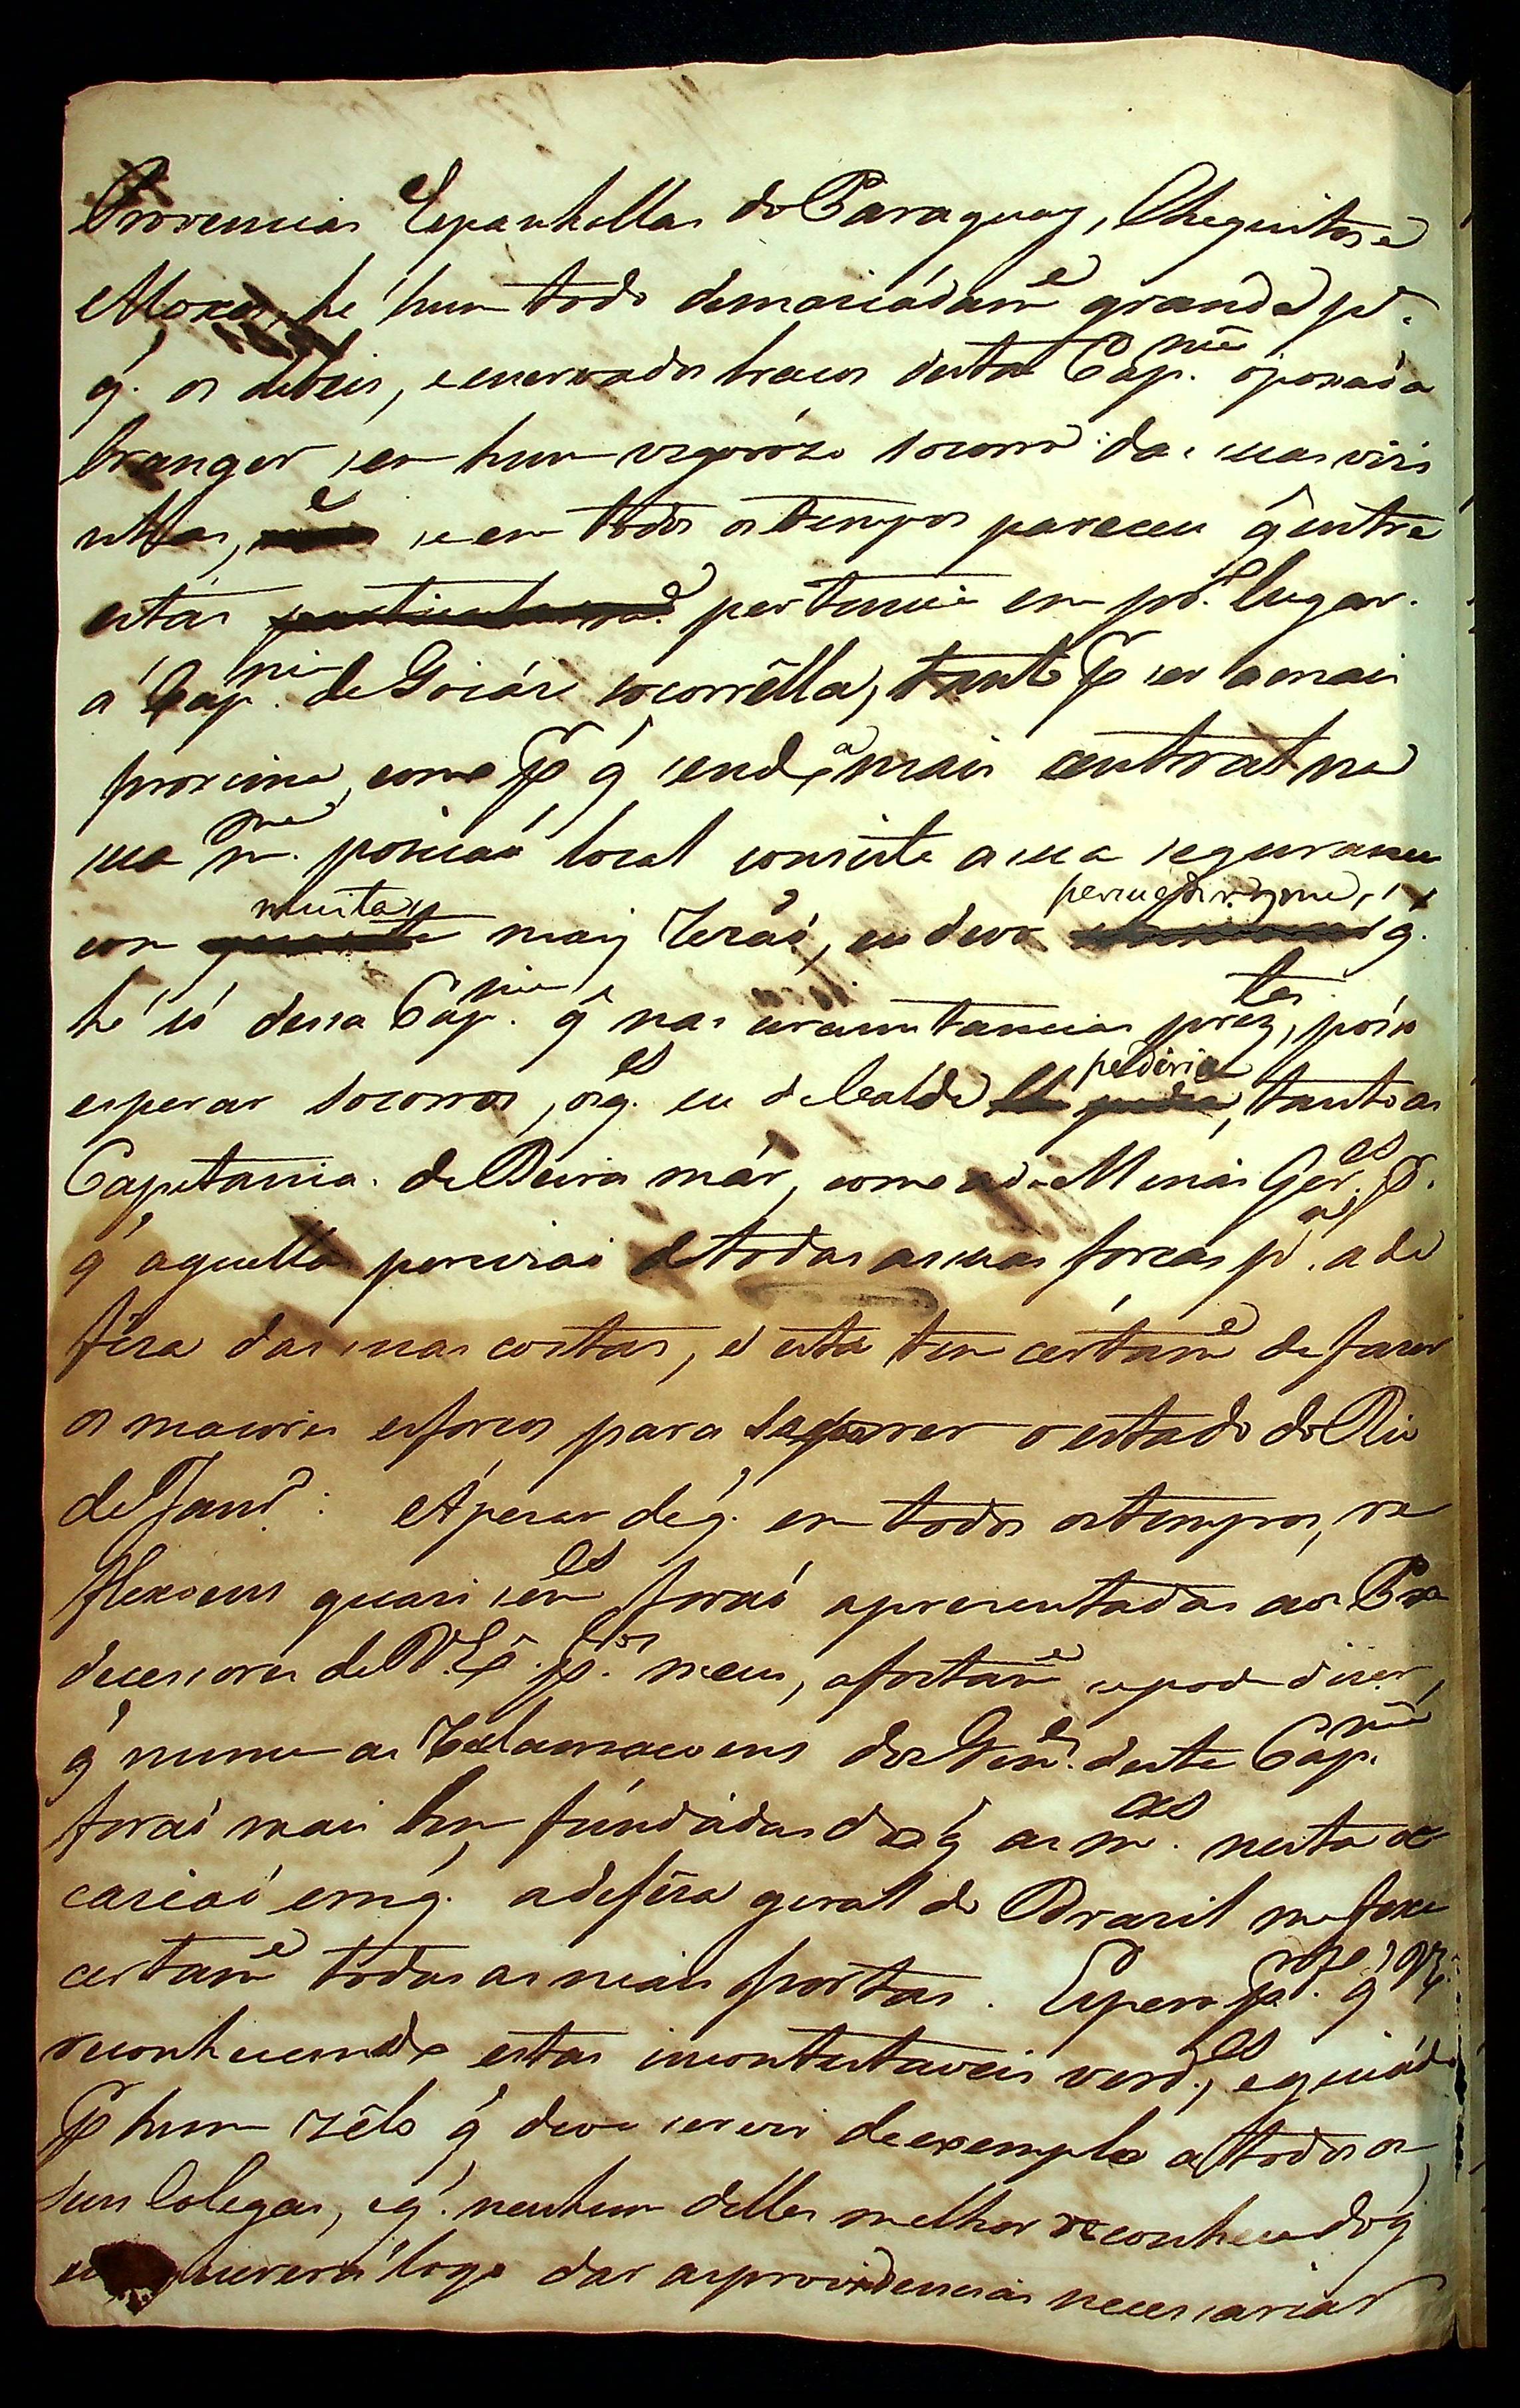 Provencias Espanhollas do Paraguay, Chequitos e
Moxos, he hum todo demaziádam.e grande p.a
q. os debeis, e enervados braços desta Cap.nia o possaõ a
branger sem hum vigorózo socorro das suas vizi
nhas, se em todos os tempos pareceu q̃ entre
estas pertencia em pr.o lugar
á Cap.nia de Goiáz socorrêlla, tanto p̱ ser a mais
proxima, como p̱ q̃ sendo a mais central na
sua m.ma posiçaõ local consiste a sua segurança
com muita mais rezaõ, eu devo persuadir-me, q.
hé só dessa Cap.nia q̃ nas circumstancias prez.tes posso
esperar socorros, os q.es eu debalde pediria, tanto as
Capitanias de Beira már, como a de Minas Ger.es p̱.
q̃ aquellas percizaõ de todas as suas forças p.a a de
féza das suas costas, e esta tem certam.e de fazer
os maiores esforços para socorrer o estado do Rio
de Janr.o: Apezar de q. em todos os tempos, re
flexoens quazi sem.es foraõ apresentadas aos Pre
decessores de V. Ex.a p̱.los meus, afoitam.e se pode dizer,
q̃ nunca as reclamaçoens dos Gen.es desta Cap.nia
foraõ mais bem fundádas do q̃ as m.as nesta oc
caziaõ em q. a deféza geral do Brazil me fexa
certam.e todas as mais portas. Espero p̱. q̃ V. Ex.a
reconhecendo estas incontestaveis verd.es, e guiádo
p̱ hum zêlo q̃ deve servir de exemplo a todos os
seus Colegas, e q. nenhum delles melhor reconhece do q̃
eu quererá logo dar as providencias necessarias